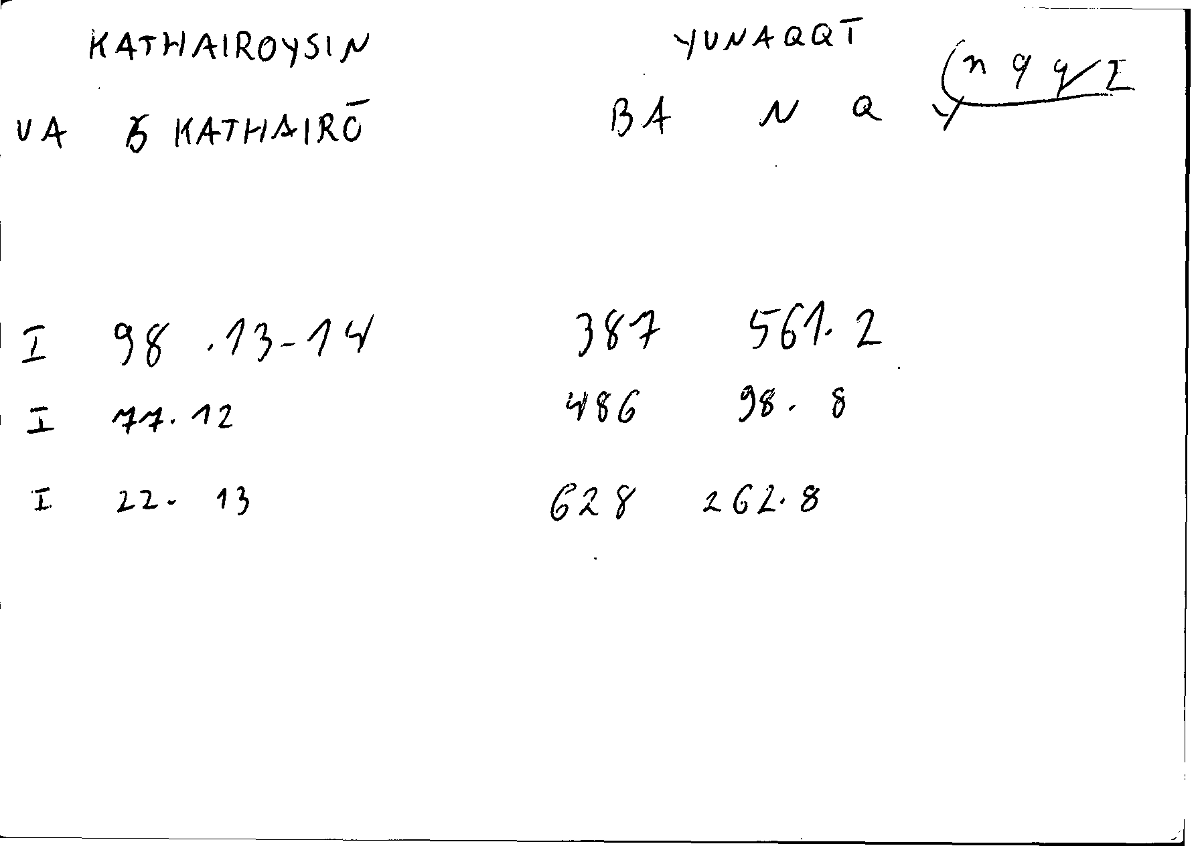 KATHAIROYSIN YUNAQQĪ
VA KATHAIRŌ BA N Q (nqqI
I 98 .13-14 387 561.2
I 77.12 486 98. 8
I 22. 13 628 262.8